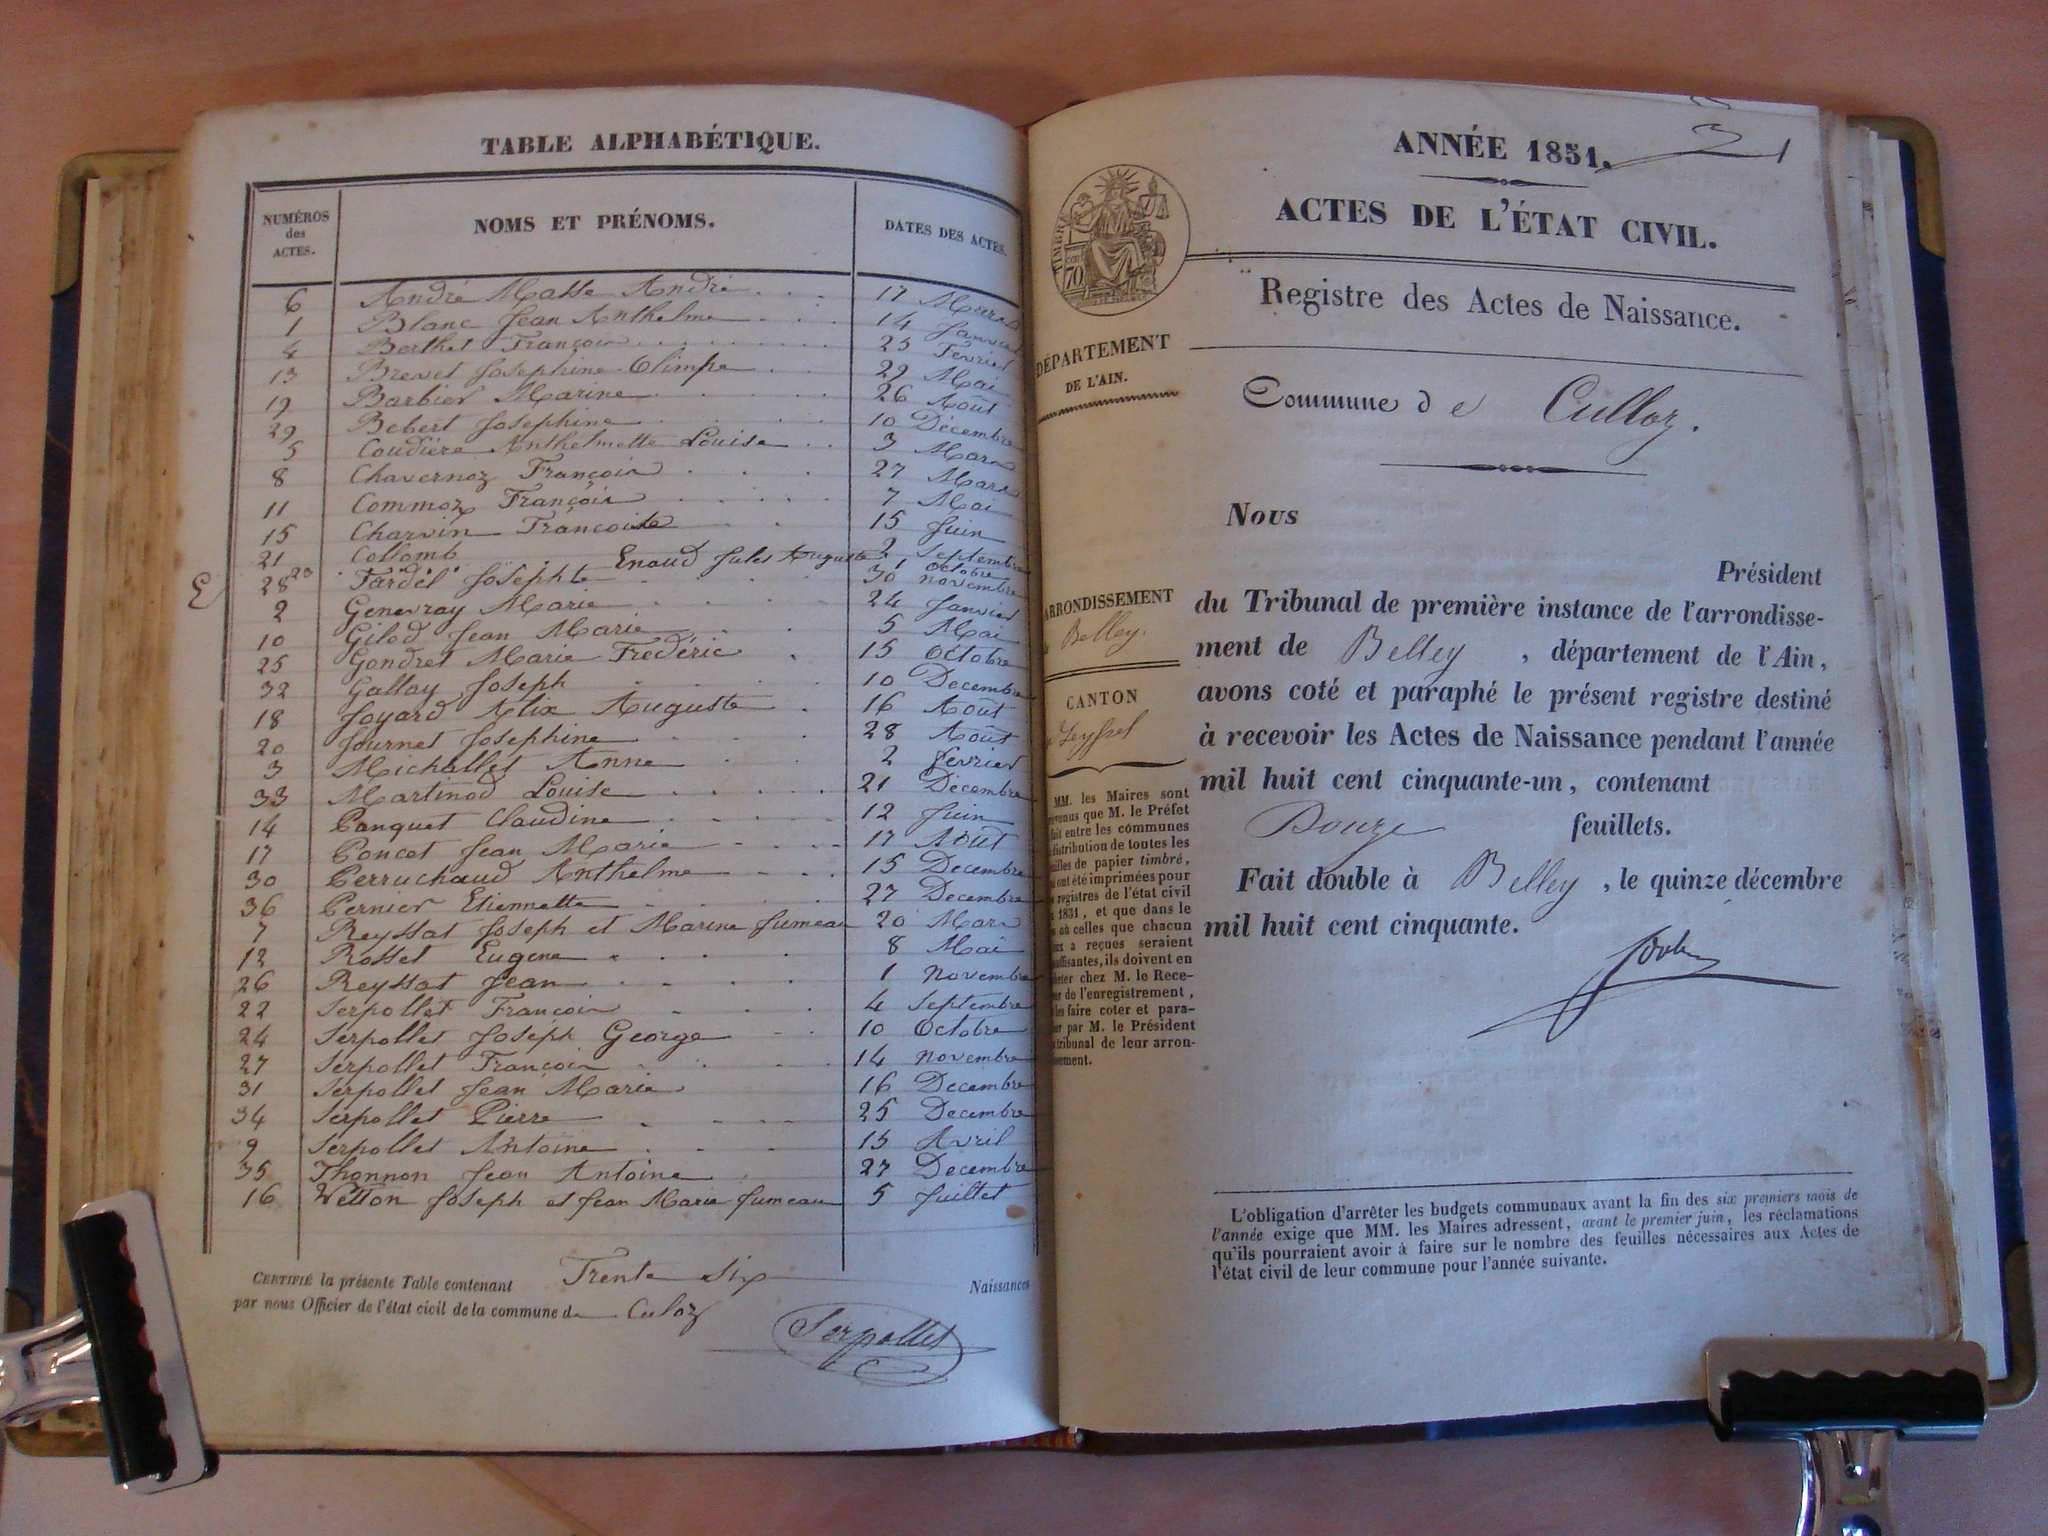 TABLE ALPHABÉTIQUE.
NUMÉROS des ACTES. NOMS ET PRÉNOMS. DATES DES ACTES.
6 André Masse André 17 Mars
1 Blanc Jean Anthelme 14 Janvier
4 Berthet François 25 Fevrier
13 Brevet Josephine Olimpe 29 Mai
19 Barbier Marine 26 Août
29 Bebert Josephine 10 Décembre
5 Coudière Anthelmette Louise 3 Mars
8 Chavernoz François 27 Mars
11 Commoz François 7 Mai
15 Charvin Francoise 15 Juin
21 Collomb 2 Septembre
Enaud Jules Auguste 1 Octobre
28 Fardel Josephte 30 novembre
2 Genevray Marie 24 Janvier
10 Gilod Jean Marie 5 Mai
25 Gondret Marie Frédéric 15 Octobre
32 Gallay Joseph 10 Decembre
18 Joyard Alix Auguste 16 Aout
20 Journet Josephine 28 Août
3 Michallet Anne 2 fevrier
33 Martinod Louise 21 Décembre
14 Panquet Claudine 12 Juin
17 Poncet Jean Marie 17 Aout
30 Perruchaud Anthelme 15 Decembre
36 Pernier Etiennette 27 Decembre
7 Reyssat Joseph et Marine Jumeau 20 Mars
12 Rosset Eugene 8 Mai
26 Reyssat Jean 1 novembre
22 Serpollet François 4 Septembre
24 Serpollet Joseph George 10 Octobre
27 Serpollet François 14 novembre
31 Serpollet Jean Marie 16 Decembre
34 Serpollet Pierre 25 Decembre
9 Serpollet Antoine 15 Avril
35 Thonnon Jean Antoine 27 Decembre
16 Wetton Joseph et Jean Marie Jumeau 5 Juillet
CERTIFIÉ la présente Table contenant Trente Six Naissances
par nous Officier de l'état civil de la commune de Culoz
Serpollet
ANNÉE 1851. 1
ACTES DE L'ÉTAT CIVIL.
TIMBRE
70
Registre des Actes de Naissance.
DÉPARTEMENT
DE L'AIN.
Commune de Culloz.
Nous
Président
du Tribunal de première instance de l'arrondisse-
ment de Belley, département de l'Ain,
avons coté et paraphé le présent registre destiné
à recevoir les Actes de Naissance pendant l'année
mil huit cent cinquante-un, contenant
Douze feuillets.
Fait double à Belley, le quinze décembre
mil huit cent cinquante.
ARRONDISSEMENT
Belley.
CANTON
Seyssel
MM. les Maires sont
venus que M. le Préfet
fait entre les communes
distribution de toutes les
feuilles de papier timbré,
ont été imprimées pour
registres de l'état civil
1851, et que dans le
où celles que chacun
eux a reçues seraient
suffisantes, ils doivent en
acheter chez M. le Rece-
veur de l'enregistrement,
les faire coter et para-
pher par M. le Président
tribunal de leur arron-
dissement.
L'obligation d'arrêter les budgets communaux avant la fin des six premiers mois de
l'année exige que MM. les Maires adressent, avant le premier juin, les réclamations
qu'ils pourraient avoir à faire sur le nombre des feuilles nécessaires aux Actes de
l'état civil de leur commune pour l'année suivante.